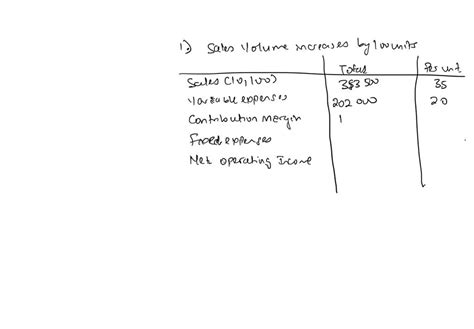 1) Sales Volume increases by 100 units
Total Per unit
Sales (10,100) 353 500 35
Variable expenses 202 000 20
Contribution Margin 1
Fixed expenses
Net operating Income